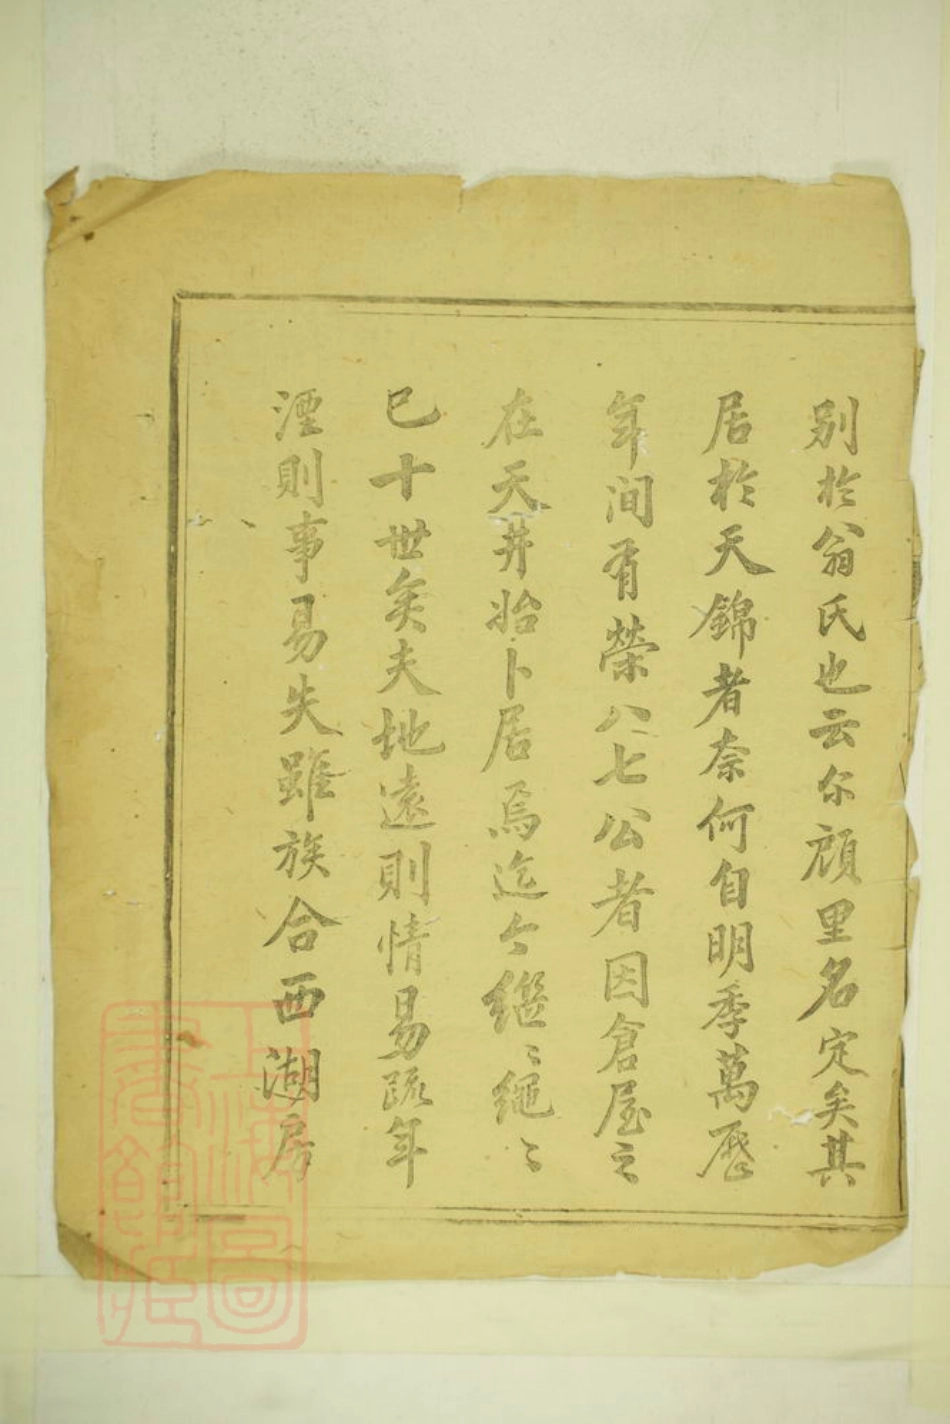 別於翁氏也云尔顔里名定矣其
居於天錦者奈何自明季萬厯
年间有榮八七公者因倉屋之
在天井始卜居焉迄今繼〻繩〻
已十世矣夫地遠則情易疏年
湮則事易失雖族合西湖房
上海圖書館藏